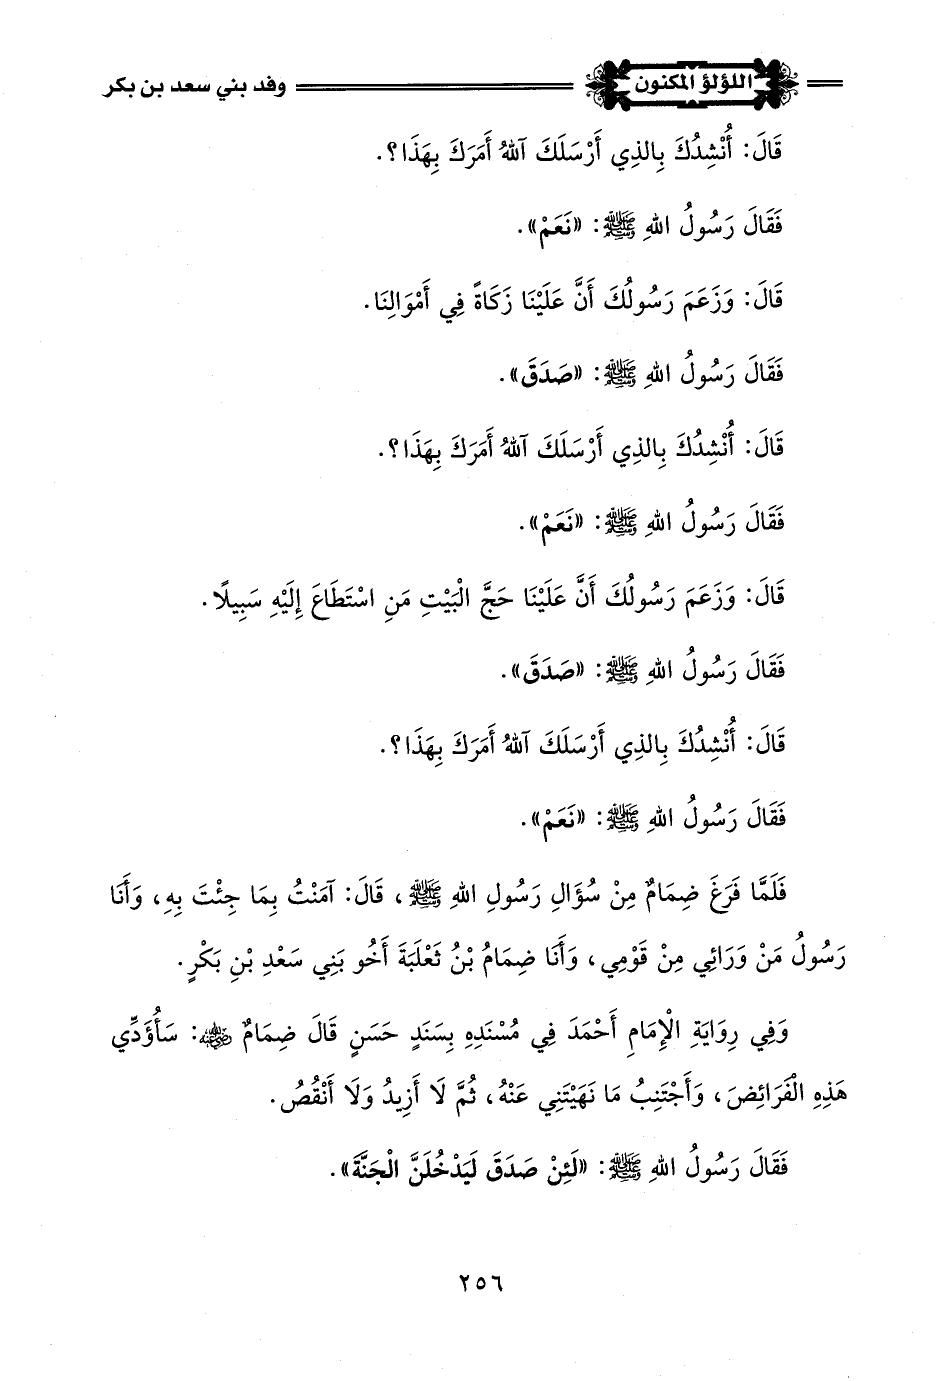 اللؤلؤ المكنون وفد بني سعد بن بكر
قَالَ: أُنْشِدُكَ بِالذِي أَرْسَلَكَ آللهُ أَمَرَكَ بِهَذَا؟.
فَقَالَ رَسُولُ اللهِ ﷺ: «نَعَمْ».
قَالَ: وَزَعَمَ رَسُولُكَ أَنَّ عَلَيْنَا زَكَاةً فِي أَمْوَالِنَا.
فَقَالَ رَسُولُ اللهِ ﷺ: «صَدَقَ».
قَالَ: أُنْشِدُكَ بِالذِي أَرْسَلَكَ آللهُ أَمَرَكَ بِهَذَا؟.
فَقَالَ رَسُولُ اللهِ ﷺ: «نَعَمْ».
قَالَ: وَزَعَمَ رَسُولُكَ أَنَّ عَلَيْنَا حَجَّ الْبَيْتِ مَنِ اسْتَطَاعَ إِلَيْهِ سَبِيلًا.
فَقَالَ رَسُولُ اللهِ ﷺ: «صَدَقَ».
قَالَ: أُنْشِدُكَ بِالذِي أَرْسَلَكَ آللهُ أَمَرَكَ بِهَذَا؟.
فَقَالَ رَسُولُ اللهِ ﷺ: «نَعَمْ».
فَلَمَّا فَرَغَ ضِمَامٌ مِنْ سُؤَالِ رَسُولِ اللهِ ﷺ، قَالَ: آمَنْتُ بِمَا جِئْتَ بِهِ، وَأَنَا
رَسُولُ مَنْ وَرَائِي مِنْ قَوْمِي، وَأَنَا ضِمَامُ بْنُ ثَعْلَبَةَ أَخُو بَنِي سَعْدِ بْنِ بَكْرٍ.
وَفِي رِوَايَةِ الْإِمَامِ أَحْمَدَ فِي مُسْنَدِهِ بِسَنَدٍ حَسَنٍ قَالَ ضِمَامٌ رضي الله عنه: سَأُؤَدِّي
هَذِهِ الْفَرَائِضَ، وَأَجْتَنِبُ مَا نَهَيْتَنِي عَنْهُ، ثُمَّ لَا أَزِيدُ وَلَا أَنْقُصُ.
فَقَالَ رَسُولُ اللهِ ﷺ: «لَئِنْ صَدَقَ لَيَدْخُلَنَّ الْجَنَّةَ».
٢٥٦